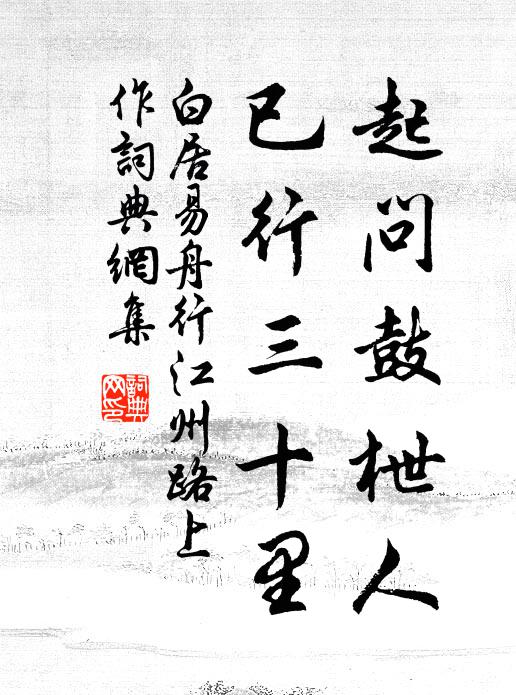 起問鼓枻人
已行三十里
白居易舟行江州路上
作詞典網集
詞典
網印